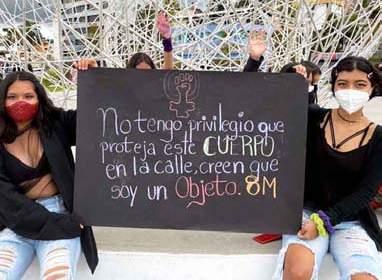 No tengo privilegio que
proteja este CUERPO
en la calle, creen que
soy un Objeto. 8M